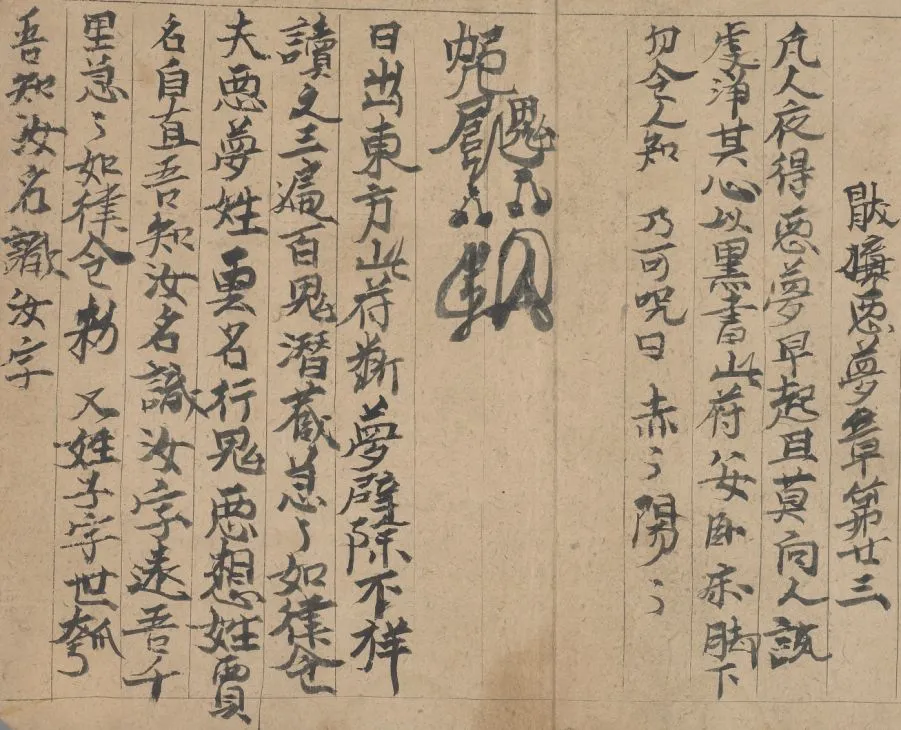 厭攘惡夢章第廿三
凡人夜得惡夢早起且莫向人說
虔淨其心以黑書此符安臥床腳下
勿令人知 乃可呪曰赤〻陽〻
日出東方此符斷夢辟除不祥
讀之三遍百鬼潛藏急〻如律令
夫惡夢姓雲名行鬼惡想姓賈
名自直吾知汝名識汝字遠吾千
里急〻如律令敕 又姓子字世瓠
吾知汝名識汝字